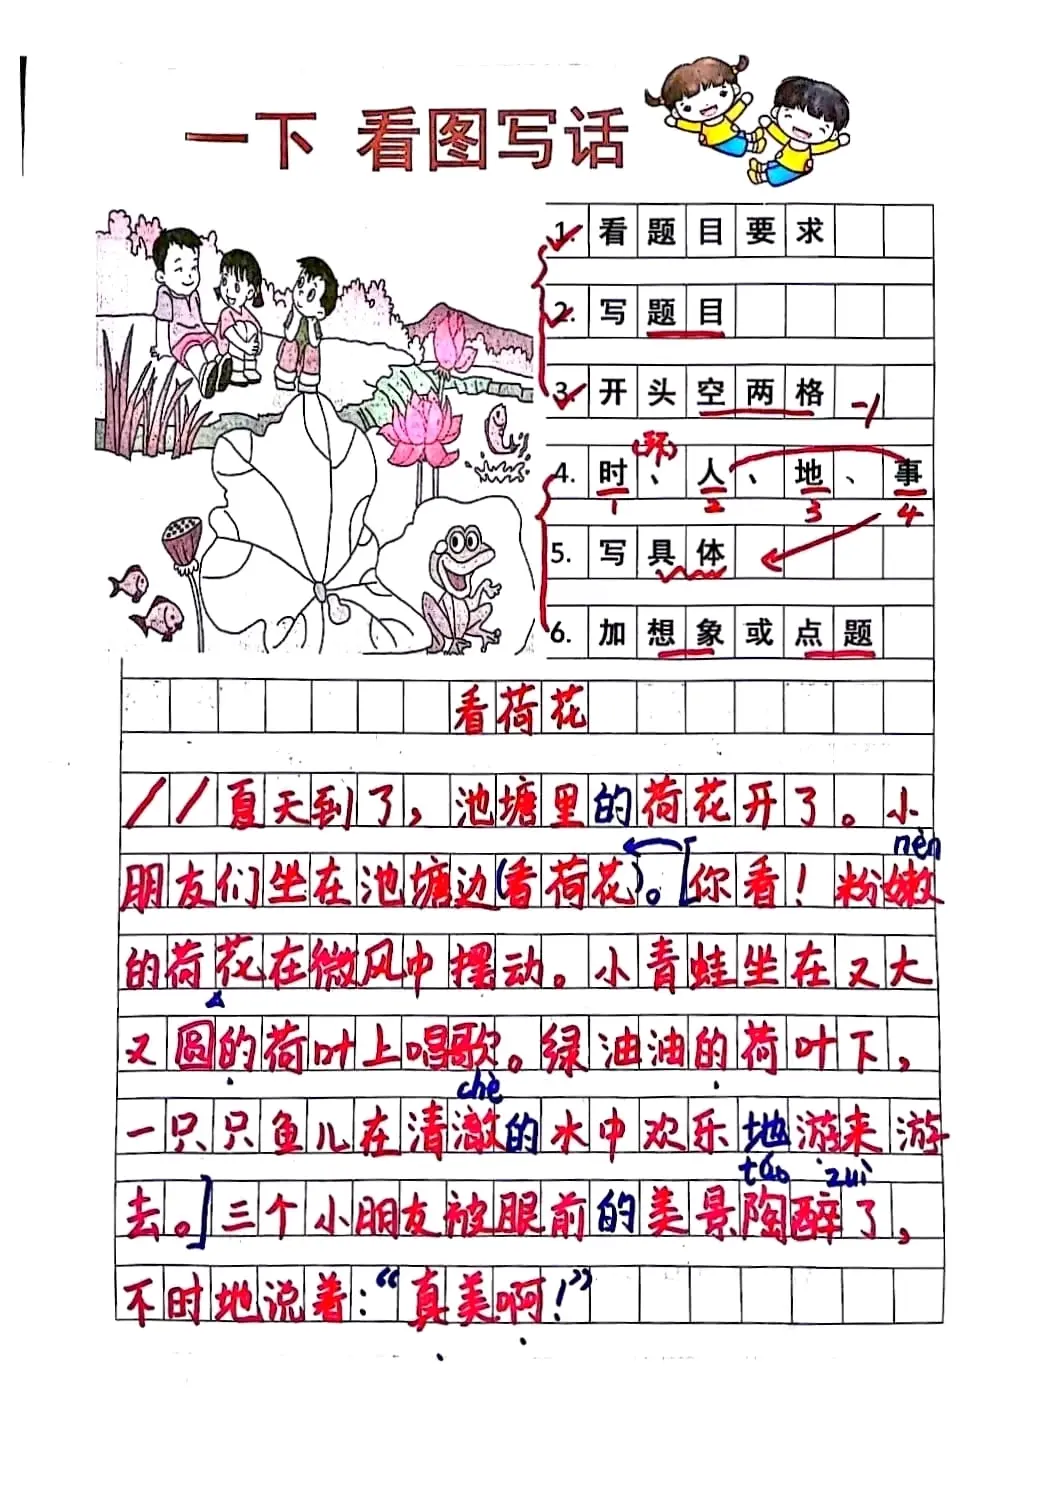 一下 看图写话
1. 看题目要求
2. 写题目
3. 开头空两格 -1
(环)
4. 时、人、地、事
1 2 3 4
5. 写具体
6. 加想象或点题
看荷花
//夏天到了，池塘里的荷花开了。小
nèn
朋友们坐在池塘边(看荷花)。[你看！粉嫩
的荷花在微风中摆动。小青蛙坐在又大
又圆的荷叶上唱歌。绿油油的荷叶下，
chè
一只只鱼儿在清澈的水中欢乐地游来游
táo zuì
去。]三个小朋友被眼前的美景陶醉了，
不时地说着：“真美啊！”